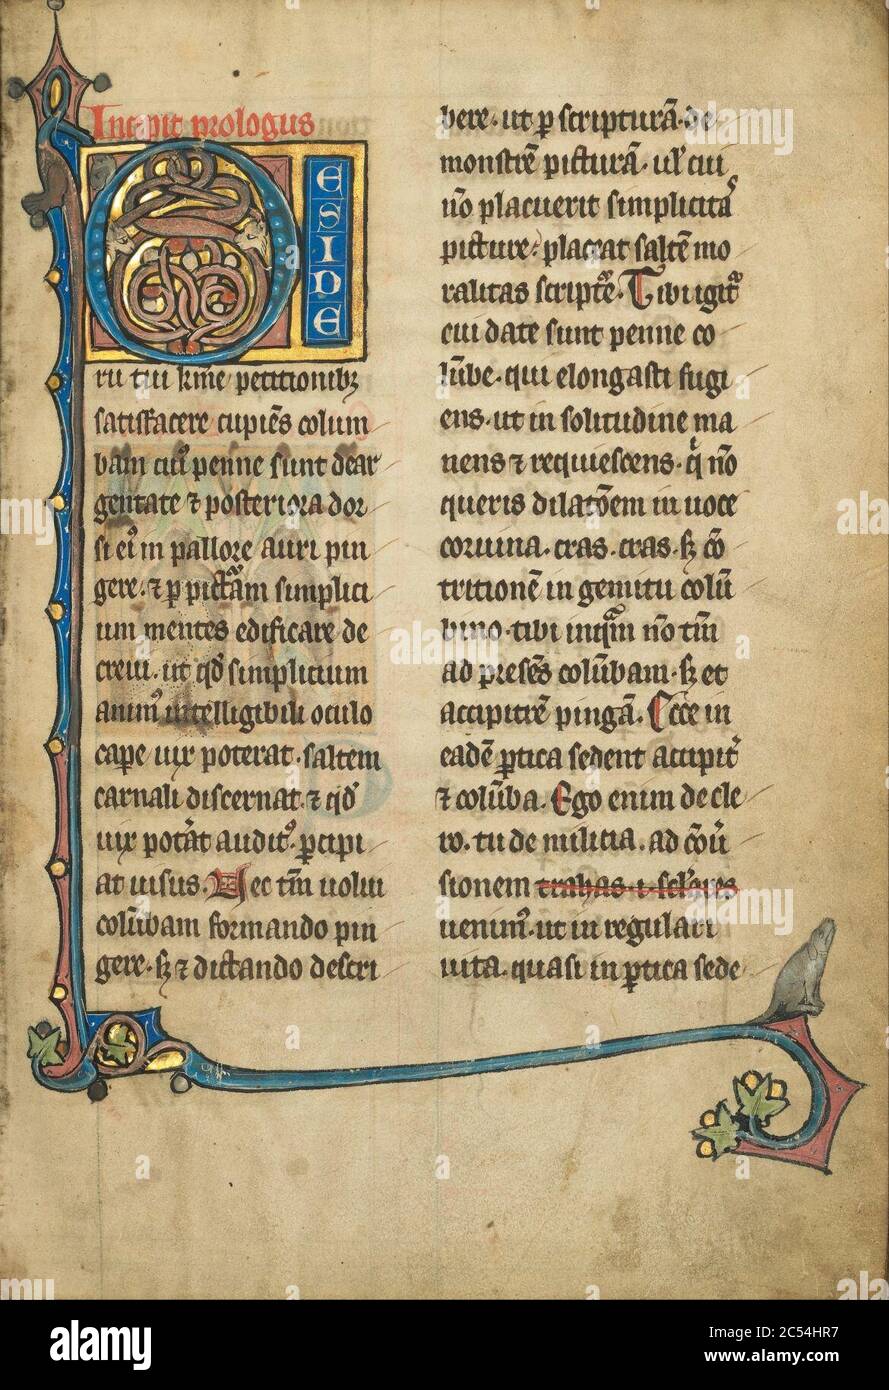 Incipit prologus
DESIDE
rii tui kme petitionibꝫ
satisfacere cupiēs colum
bam cuiꝰ penne sunt dear
gentate ⁊ posteriora dor
si eiꝰ in pallore auri pin
gere. ⁊ ꝑ picturam simplici
um mentes edificare de
creui. ut qđ simplicium
animꝰ intelligibili oculo
capere uix poterat. saltem
carnali discernat. ⁊ qđ
uix pot̄at auditꝰ. ꝑcipi
at uisus. Nec tm̄ uolui
colūbam formando pin
gere. sꝫ ⁊ dictando descri
bere. ut ꝑ scripturā. de
monstrē picturā. ul̓ cui
nō placuerit simplicitas
picture. placeat saltē mo
ralitas scripte. Tibi igit̉
cui date sunt penne co
lūbe. qui elongasti fugi
ens. ut in solitudine ma
nens ⁊ requiescens. qͥ nō
queris dilatōem in uoce
coruina. cras. cras. sꝫ cō
tritionē in gemitu colū
bino. tibi inquam nō tm̄
ad presēs colūbam. sꝫ et
accipitrē pingā. Ecce in
eadē ꝑtica sedent accipit̉
⁊ colūba. Ego enim de cle
ro. tu de militia. ad cōu̓
sionem trahas
uenimꝰ. ut in regulari
uita. quasi in ꝑtica sede
alamy
Image ID: 2C54HR7
www.alamy.com